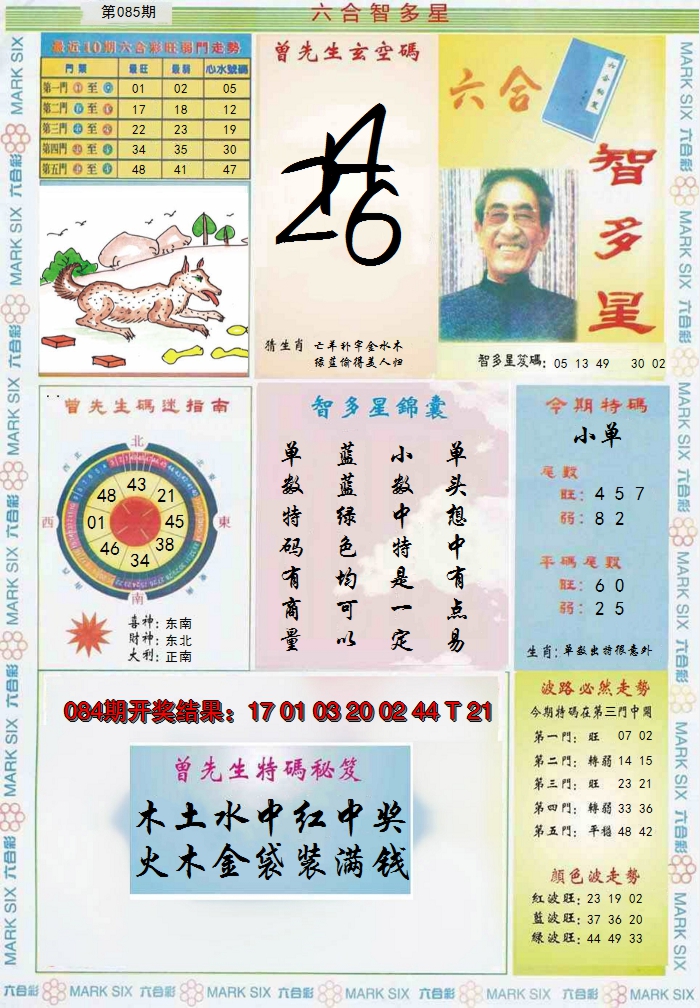 第085期
六合智多星
最近10期六合彩旺弱門走勢
門類 最旺 最弱 心水號碼
第一門 至 01 02 05
第二門 至 17 18 12
第三門 至 22 23 19
第四門 至 34 35 30
第五門 至 48 41 47
曾先生玄空碼
26
猜生肖 亡羊补牢金水木
绿蓝偷得美人归
六合
智多星
智多星笈碼: 05 13 49 30 02
曾先生碼迷指南
北
西
東
南
43
48 21
01 45
46 38
34
喜神: 东南
財神: 东北
大利: 正南
智多星錦囊
单头想中有点易
小数中特是一定
蓝蓝绿色均可以
单数特码有商量
今期特碼
小单
尾數
旺: 4 5 7
弱: 8 2
平碼尾數
旺: 6 0
弱: 2 5
生肖: 单数出特很意外
084期开奖结果: 17 01 03 20 02 44 T 21
曾先生特碼秘笈
木土水中红中奖
火木金袋装满钱
波路必然走勢
今期特碼在第三門中開
第一門: 旺 07 02
第二門: 轉弱 14 15
第三門: 旺 23 21
第四門: 轉弱 33 36
第五門: 平穩 48 42
顏色波走勢
紅波旺: 23 19 02
藍波旺: 37 36 20
綠波旺: 44 49 33
MARK SIX 六合彩